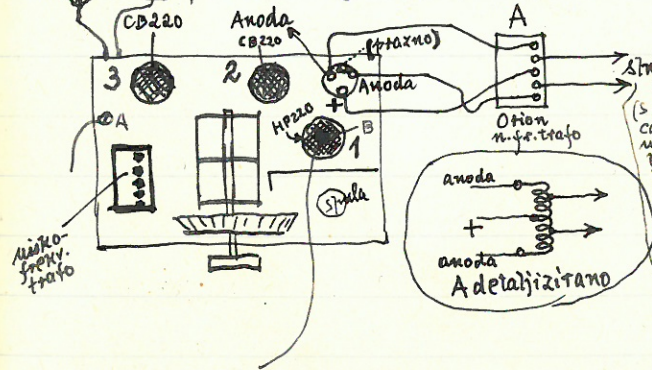 CB220
Anoda
CB220
(prazno)
A
3
2
Anoda
+
A
HP220
B
1
Orion
n.fr.trafo
spula
nisko-
frekv.
trafo
anoda
+
anoda
A detaljizirano